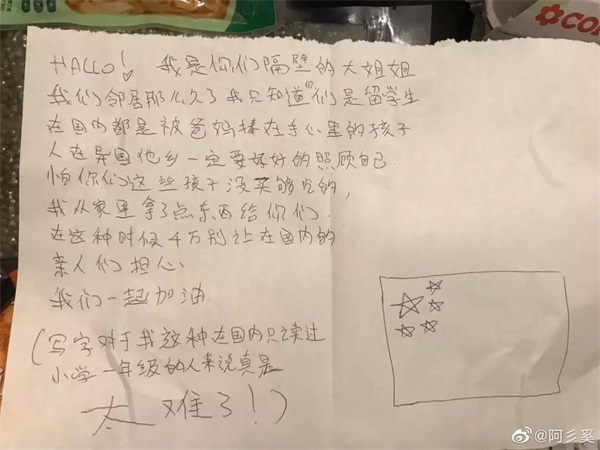 HALLO! 我是你们隔壁的大姐姐
我们邻居那么久了我只知道你们是留学生
在国内都是被爸妈捧在手心里的孩子
人在异国他乡一定要好好的照顾自己.
怕你们这些孩子没买够吃的,
我从家里拿了点东西给你们.
在这种时候4万别让在国内的
亲人们担心.
我们一起加油.
(写字对于我这种在国内只读过
小学一年级的人来说真是
太难了!)
CO
@阿彡奚